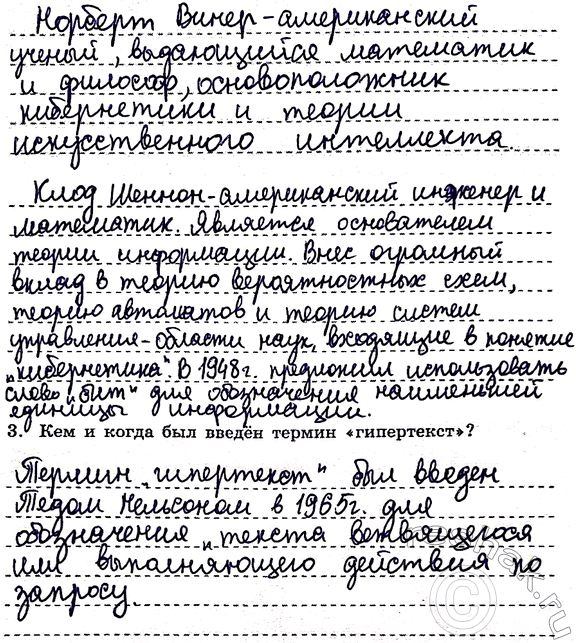 Норберт Винер-американский
ученый, выдающийся математик
и философ, основоположник
кибернетики и теории
искусственного интеллекта.
Клод Шеннон-американский инженер и
математик. Является основателем
теории информации. Внес огромный
вклад в теорию вероятностных схем,
теорию автоматов и теорию систем
управления-области наук, входящие в понятие
"кибернетика". В 1948г. предложил использовать
слово "бит" для обозначения наименьшей
единицы информации.
3. Кем и когда был введён термин «гипертекст»?
Термин "гипертекст" был введен
Тедом Нельсоном в 1965г. для
обозначения "текста ветвящегося
или выполняющего действия по
запросу.